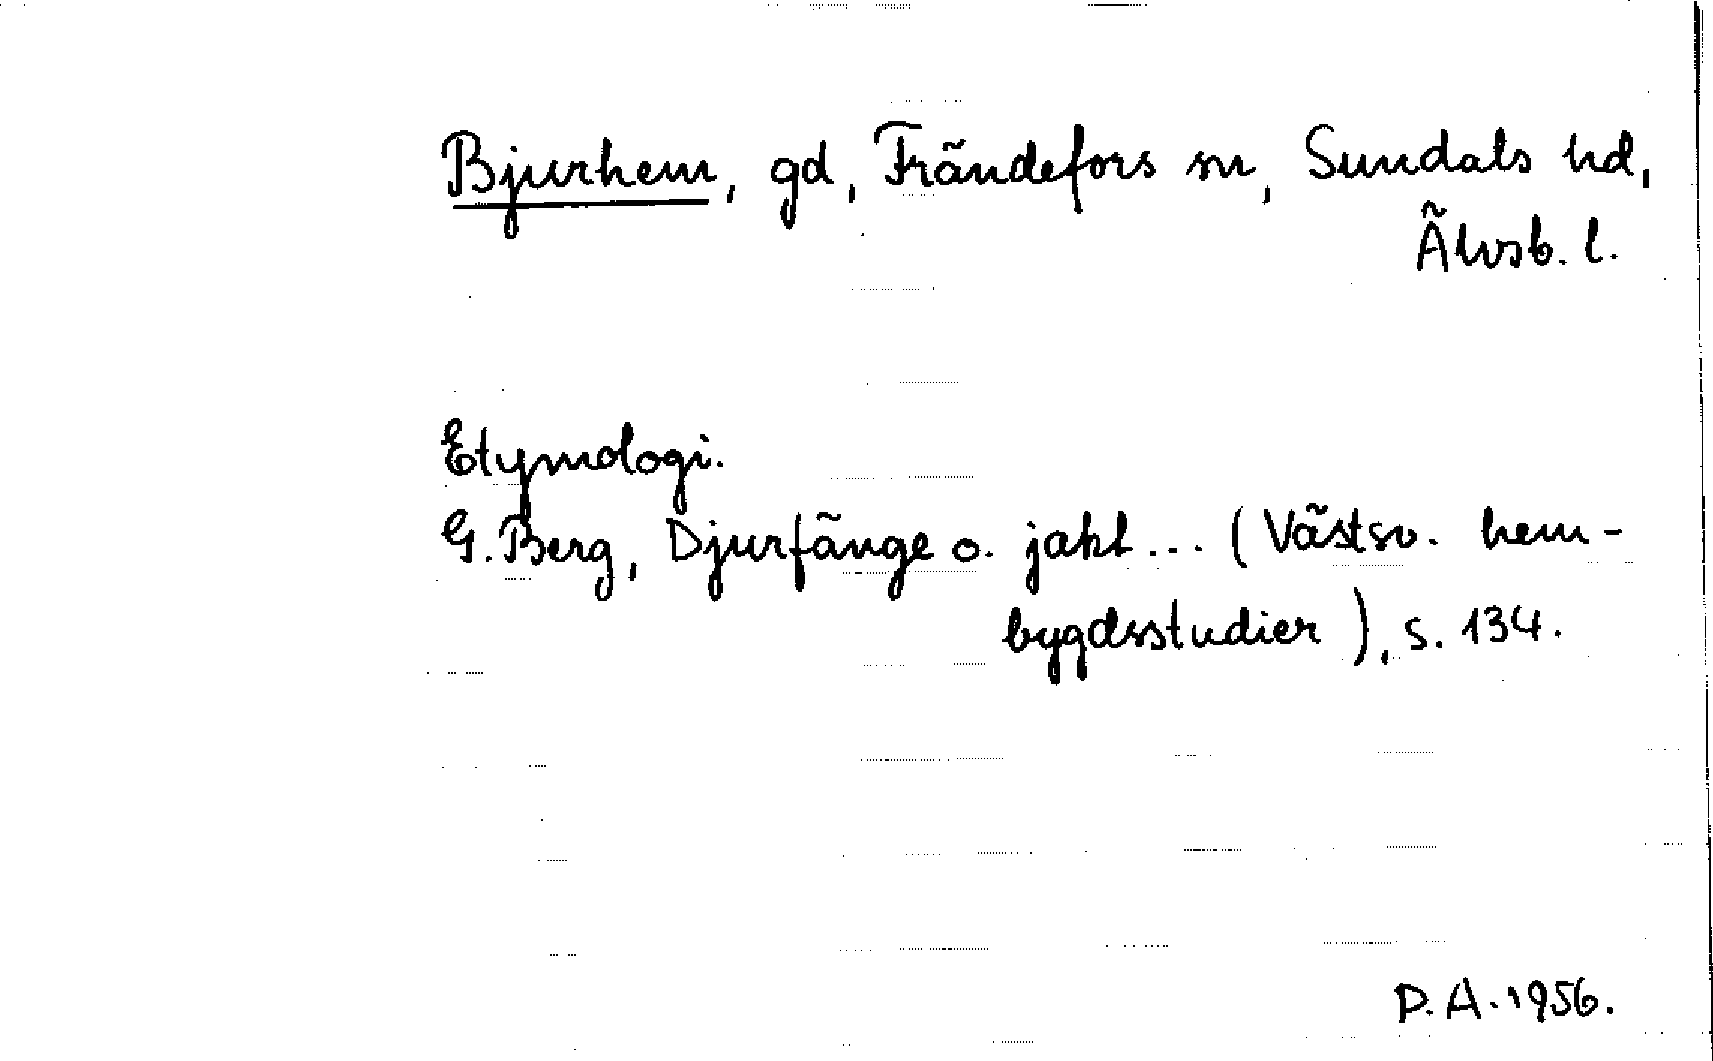 Bjurhem, gd, Frändefors sn, Sundals hd,
Älvsb. l.
Etymologi.
G. Berg, Djurfänge o. jakt... (Västsv. hem-
bygdsstudier), s. 134.
P. A. 1956.